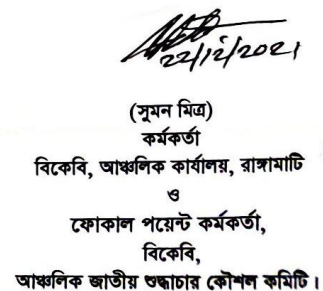 22/12/2021
(সুমন মিত্র)
কর্মকর্তা
বিকেবি, আঞ্চলিক কার্যালয়, রাঙ্গামাটি
ও
ফোকাল পয়েন্ট কর্মকর্তা,
বিকেবি,
আঞ্চলিক জাতীয় শুদ্ধাচার কৌশল কমিটি।